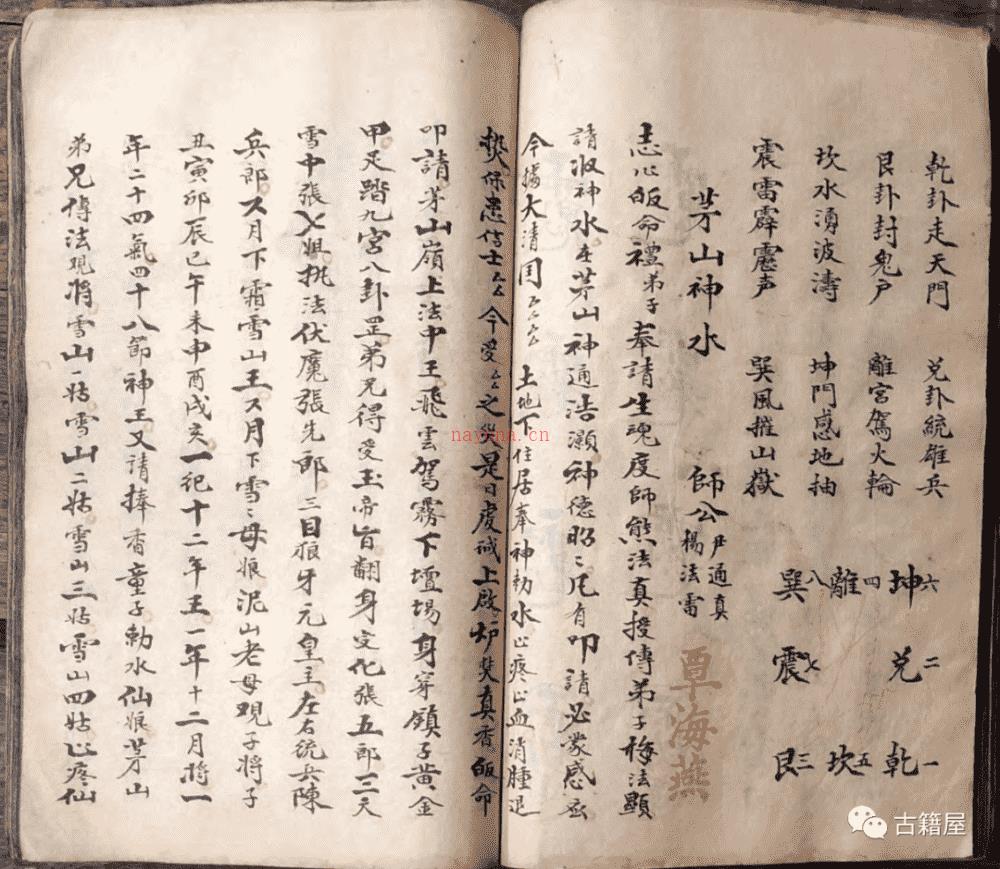 乾卦走天門　兌卦統雄兵
艮卦封鬼戶　離宮駕火輪
坎水湧波濤　坤門感地抽
震雷霹靂声　巽風摧山嶽
六坤　二兌　一乾
四離　五坎
八巽　七震　三艮
茅山神水　師公尹通真楊法雷
覃海燕
志心皈命禮弟子奉請生魂度師熊法真授傳弟子梅法顯
請収神水在茅山神通浩灝神德昭〻凡有叩請必蒙感應
今據大清囯厶厶厶厶土地下住居奉神勅水止疼止血消腫退
熱保患信士厶厶今受厶厶之災是日虔诚上啟炉焚真香皈命
叩請茅山嶺上法中王飛雲駕霧下壇場身穿鎖子黃金
甲足踏九宮八卦罡弟兄得受玉帝旨翻身变化張五郎三天
雪中張七姐挑法伏魔張先郎三目狼牙元皇主左右统兵陳
兵郎又月下霜雪山王又月下雪〻母娘泥山老母覌子將子
丑寅卯辰巳午未申酉戌亥一祀十二年王一年十二月將一
年二十四氣四十八節神王又請捧香童子勅水仙娘茅山
弟兄傳法現將雪山一姑雪山二姑雪山三姑雪山四姑止疼仙
nayona.cn
古籍屋